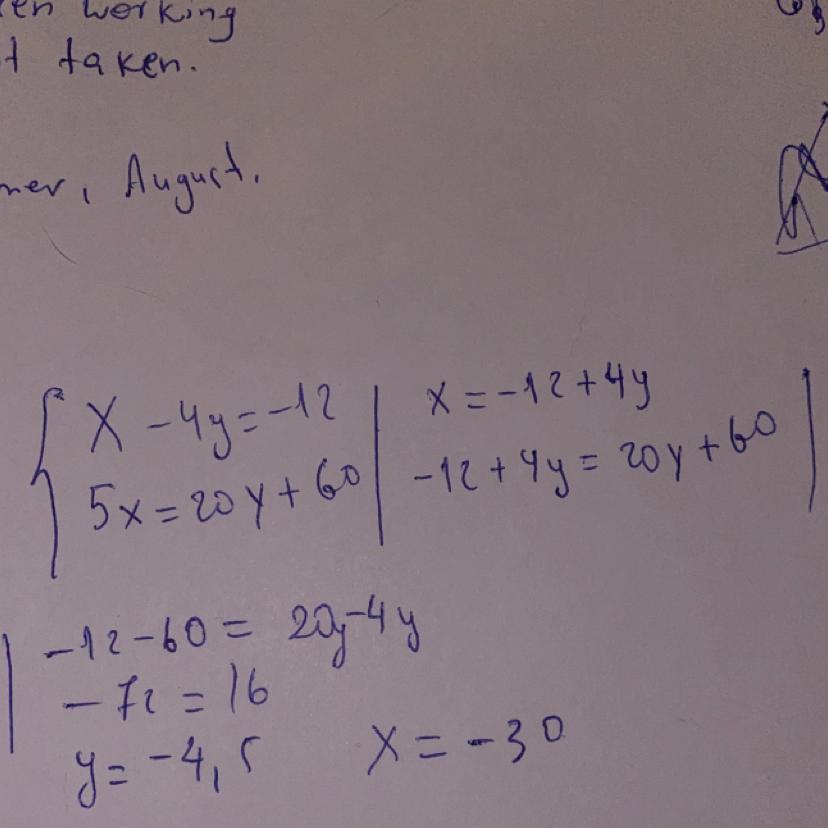 working
t taken.
August.
x - 4y = -12
5x = 20y + 60
x = -12 + 4y
-12 + 4y = 20y + 60
-12 - 60 = 20y - 4y
-72 = 16
y = -4,5
x = -30